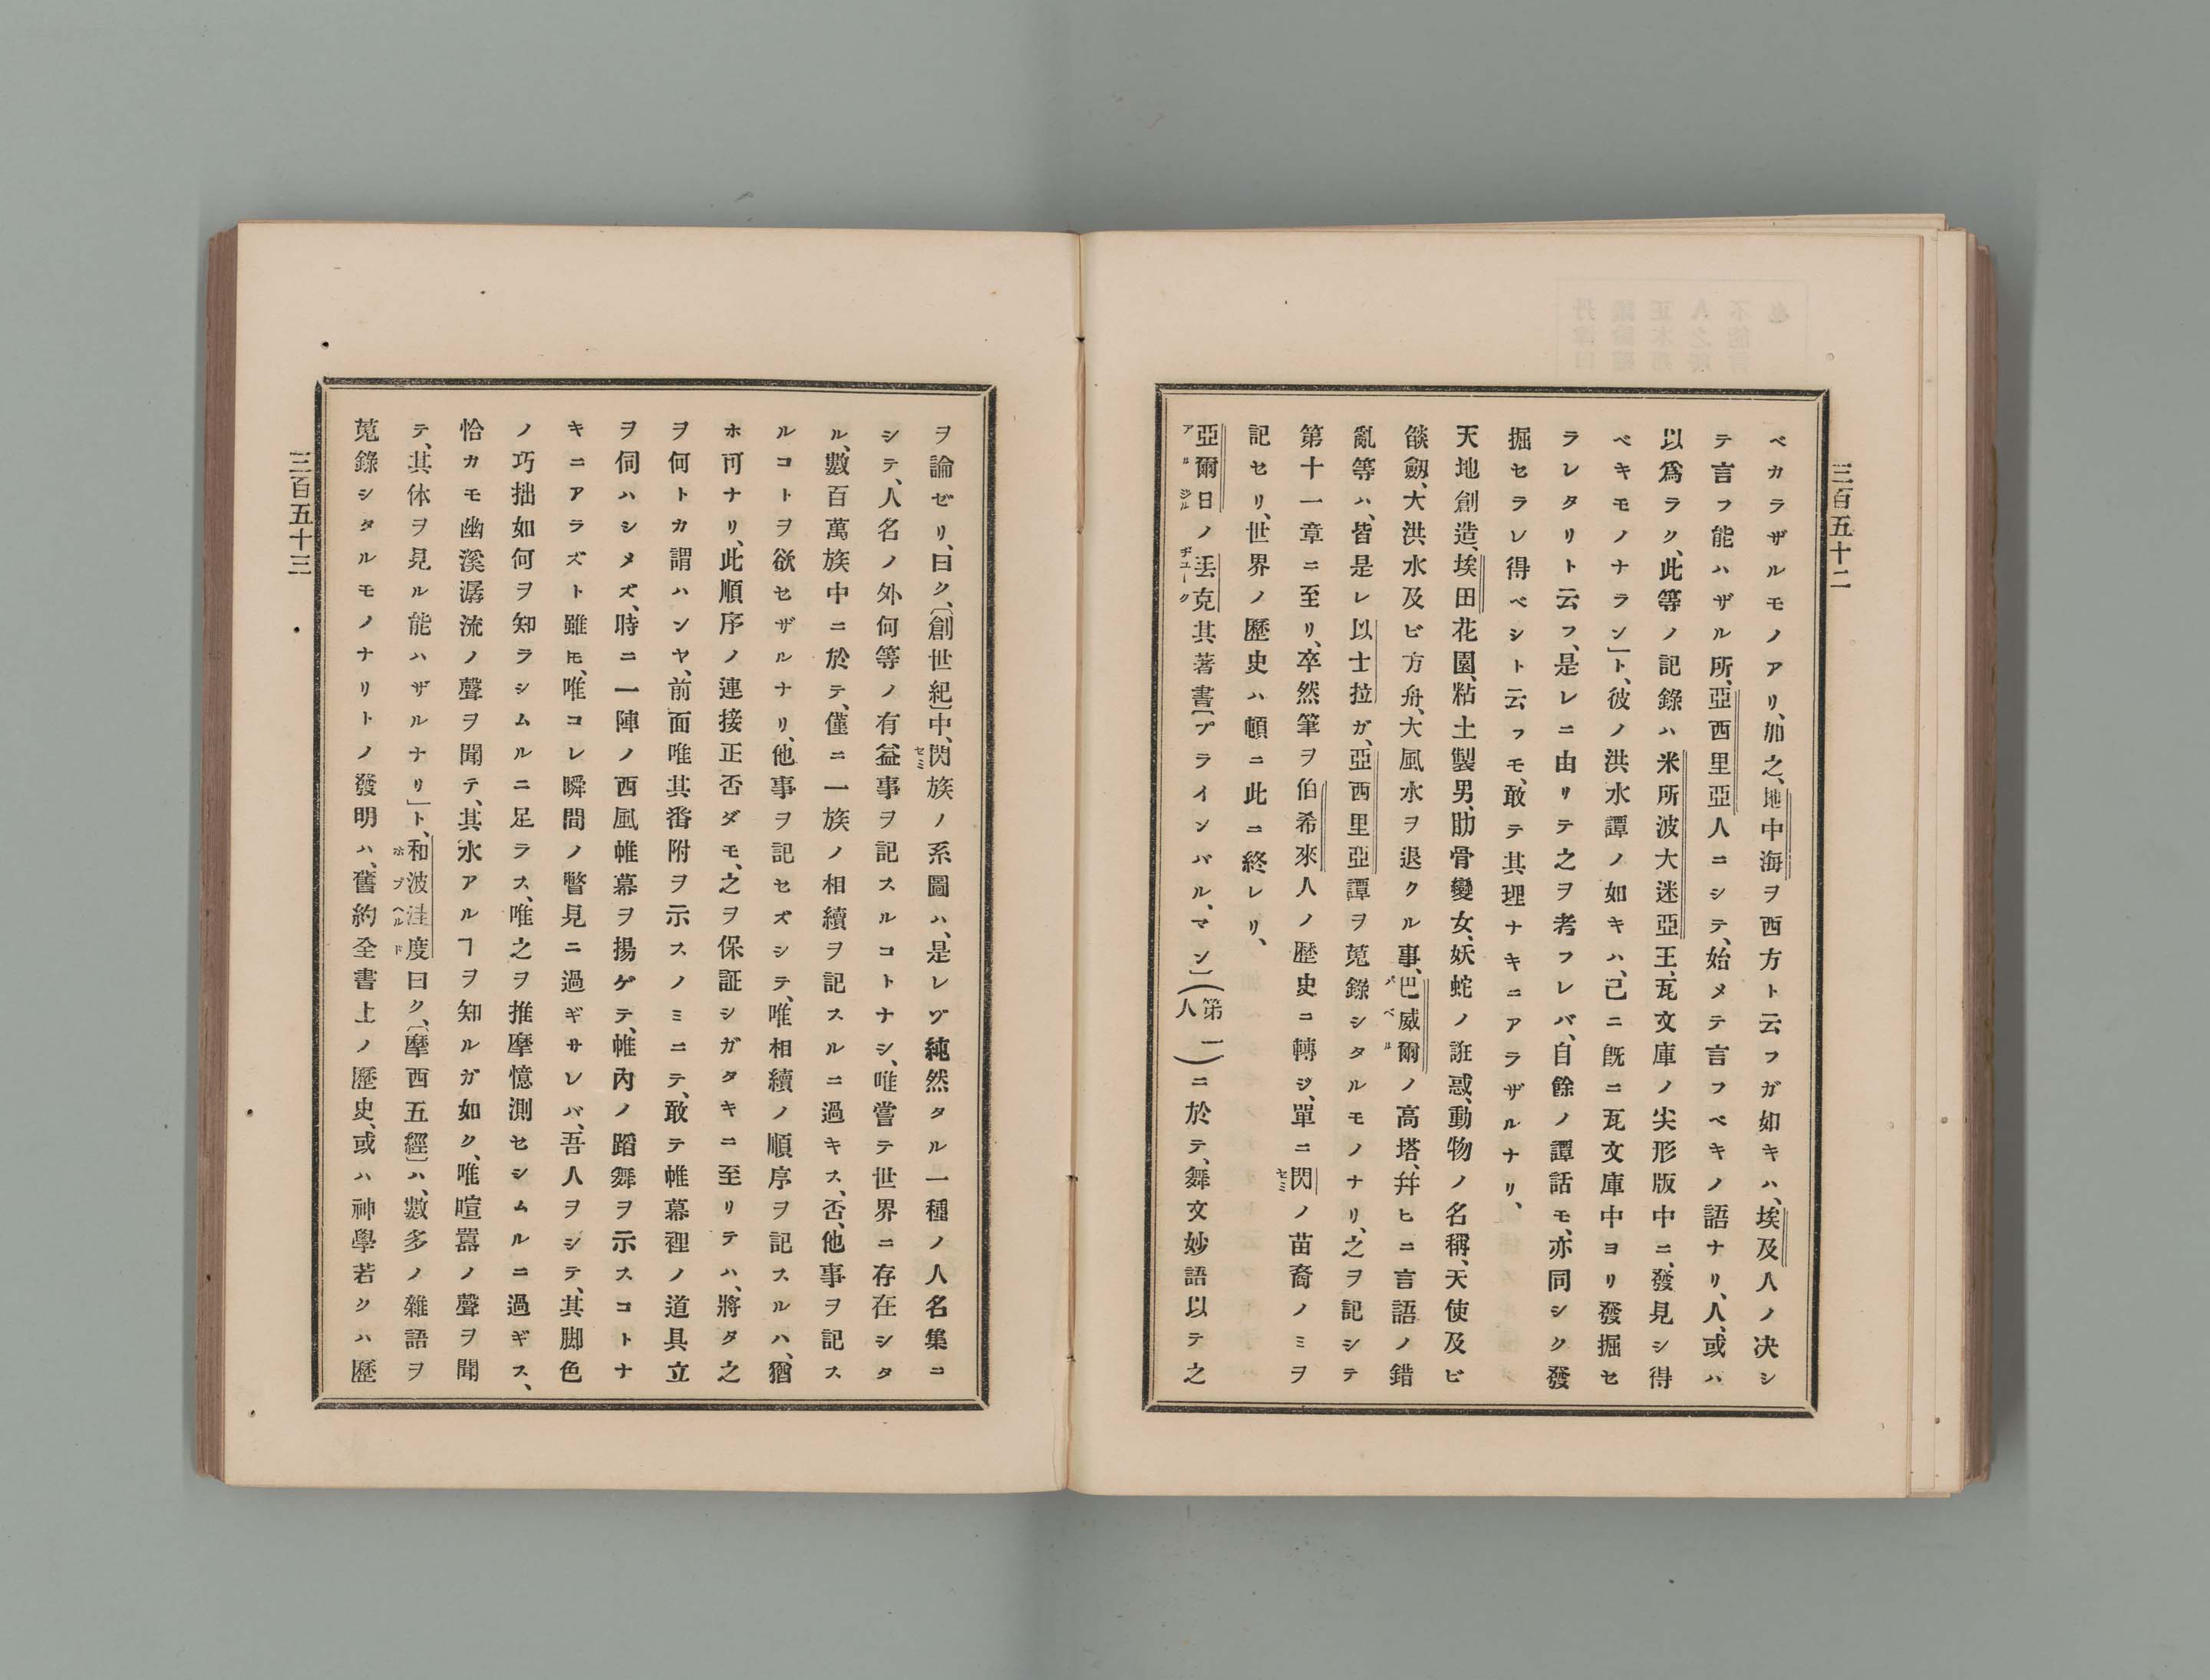 三百五十二
ベカラザルモノアリ、加之、地中海ヲ西方ト云フガ如キハ、埃及人ノ决シ
テ言フ能ハザル所、亞西里亞人ニシテ、始メテ言フベキノ語ナリ、人、或ハ
以爲ラク、此等ノ記錄ハ米所波大迷亞王、瓦文庫ノ尖形版中ニ、發見シ得
ベキモノナラン」ト、彼ノ洪水譚ノ如キハ、己ニ旣ニ瓦文庫中ヨリ發掘セ
ラレタリト云フ、是レニ由リテ之ヲ考フレバ、自餘ノ譚話モ、亦同シク發
掘セラレ得ベシト云フモ、敢テ其理ナキニアラザルナリ、
天地創造、埃田花園、粘土製男、肋骨變女、妖蛇ノ誑惑、動物ノ名稱、天使及ビ
燄劔、大洪水及ビ方舟、大風水ヲ退クル事、巴威爾ノ高塔、幷ヒニ言語ノ錯
亂等ハ、皆是レ以士拉ガ、亞西里亞譚ヲ蒐錄シタルモノナリ、之ヲ記シテ
第十一章ニ至リ、卒然筆ヲ伯希來人ノ歷史コ轉シ、單ニ閃ノ苗裔ノミヲ
記セリ、世界ノ歷史ハ頓ニ此ニ終レリ、
亞爾日ノ丟克其著書〔プラインバル、マン〕(第一人)ニ於テ、舞文妙語以テ之
ヲ論ゼリ、曰ク、〔創世紀〕中、閃族ノ系圖ハ、是レゾ純然タル一種ノ人名集コ
シテ、人名ノ外何等ノ有益事ヲ記スルコトナシ、唯嘗テ世界ニ存在シタ
ル、數百萬族中ニ於テ、僅ニ一族ノ相續ヲ記スルニ過キス、否、他事ヲ記ス
ルコトヲ欲セザルナリ、他事ヲ記セズシテ、唯相續ノ順序ヲ記スルハ、猶
ホ可ナリ、此順序ノ連接正否ダモ、之ヲ保証シガタキニ至リテハ、將タ之
ヲ何トカ謂ハンヤ、前面唯其番附ヲ示スノミニテ、敢テ帷幕裡ノ道具立
ヲ伺ハシメズ、時ニ一陣ノ西風帷幕ヲ揚ゲテ、帷內ノ蹈舞ヲ示スコトナ
キニアラズト雖𪜈、唯コレ瞬間ノ瞥見ニ過ギサレバ、吾人ヲシテ、其脚色
ノ巧拙如何ヲ知ラシムルニ足ラス、唯之ヲ推摩憶測セシムルニ過ギス、
恰カモ幽溪潺流ノ聲ヲ聞テ、其水アルヿヲ知ルガ如ク、唯喧囂ノ聲ヲ聞
テ、其体ヲ見ル能ハザルナリ」ト、和波洼度曰ク、〔摩西五經〕ハ、數多ノ雜語ヲ
蒐錄シタルモノナリトノ發明ハ、舊約全書上ノ歷史、或ハ神學若クハ歷
三百五十三